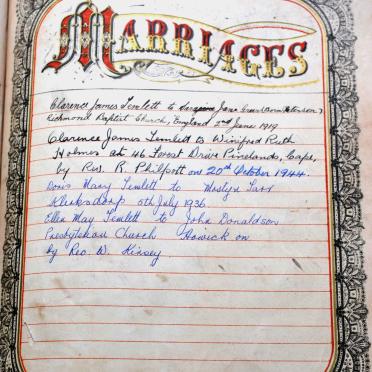 MARRIAGES
Clarence James Temlett to Jane (Peterson)
Richmond Baptist Church, England 2nd June 1919
Clarence James Temlett to Winifred Ruth
Holmes at 46 Forest Drive Pinelands, Cape,
by Rev. R. Philpott on 20th October 1944.
Doris Mary Temlett to Mostyn
Klerksdorp 6th July 1936
Ellen May Temlett to John Donaldson
Presbyterian Church Howick on
by Rev. W. Kinsey